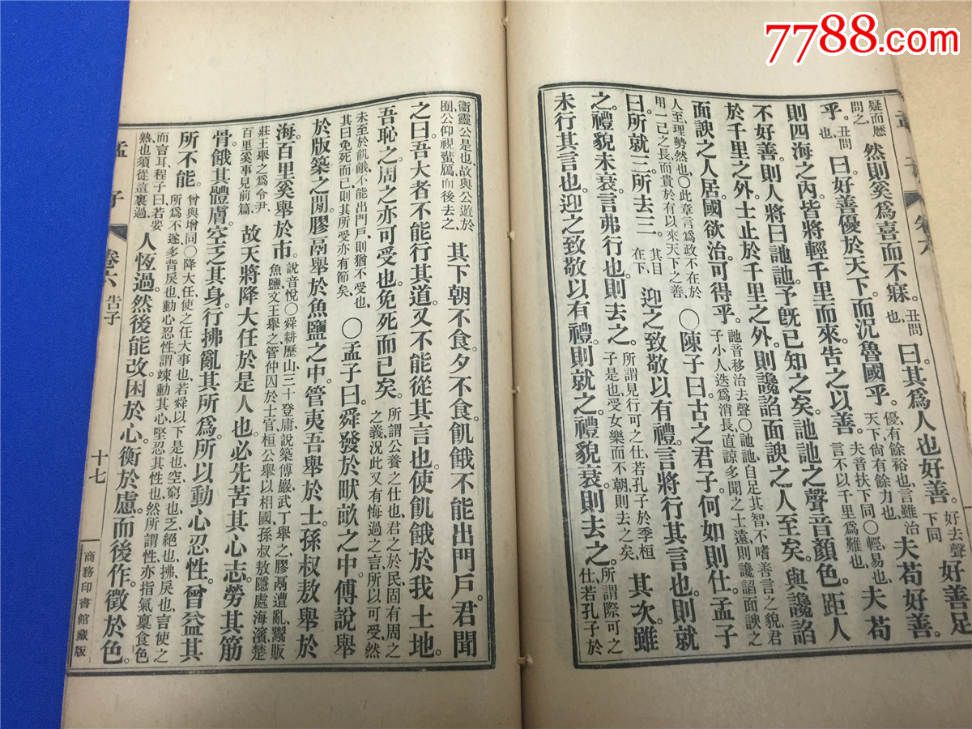 疑而歷問之。然則奚爲喜而不寐。丑問也。曰其爲人也好善。好去聲下同好善足
乎。丑問也。曰好善優於天下而況魯國乎。優有餘裕也言雖治天下尚有餘力也。夫苟好善。
則四海之內皆將輕千里而來告之以善。夫音扶下同〇輕易也言不以千里爲難也。夫苟
不好善。則人將曰訑訑予旣已知之矣。訑訑之聲音顏色。距人
於千里之外。士止於千里之外。則讒諂面諛之人至矣。與讒諂
面諛之人居國欲治可得乎。訑音移治去聲〇訑訑自足其智不嗜善言之貌君子小人迭爲消長直諒多聞之士遠則讒諂面諛之
人至理勢然也〇此章言爲政不在於用一己之長而貴於有以來天下之善。〇陳子曰古之君子何如則仕孟子
曰。所就三所去三。其目在下迎之致敬以有禮。言將行其言也則就
之。禮貌未衰言弗行也則去之。所謂見行可之仕若孔子於季桓子是也受女樂而不朝則去之矣。其次雖
未行其言也。迎之致敬以有禮則就之。禮貌衰則去之。所謂際可之仕若孔子於
衞靈公是也故與公遊於囿公仰視蜚鴈而後去之。其下朝不食夕不食飢餓不能出門戶。君聞
之曰吾大者不能行其道。又不能從其言也。使飢餓於我土地。
吾恥之。周之亦可受也。免死而已矣。所謂公養之仕也君之於民固有周之之義況此又有悔過之言所以可受然
未至於飢餓不能出門戶則猶不受也其曰免死而已則其所受亦有節矣。〇孟子曰舜發於畎畝之中。傅說舉
於版築之閒。膠鬲舉於魚鹽之中。管夷吾舉於士。孫叔敖舉於
海。百里奚舉於市。說音悅〇舜耕歷山三十登庸說築傅巖武丁舉之膠鬲遭亂鬻販魚鹽文王舉之管仲囚於士官桓公舉以相國孫叔敖隱處海濱楚
莊王舉之爲令尹百里奚事見前篇。故天將降大任於是人也。必先苦其心志。勞其筋
骨。餓其體膚。空乏其身。行拂亂其所爲。所以動心忍性。曾益其
所不能。曾與增同〇降大任使之任大事也若舜以下是也空窮也乏絕也拂戾也言使之所爲不遂多背戾也動心忍性謂竦動其心堅忍其性也然所謂性亦指氣稟食色
而言耳程子曰若要熟也須從這裏過。人恆過然後能改。困於心衡於慮而後作。徵於色。
孟子
卷六 告子
十七
商務印書館藏版
7788.com